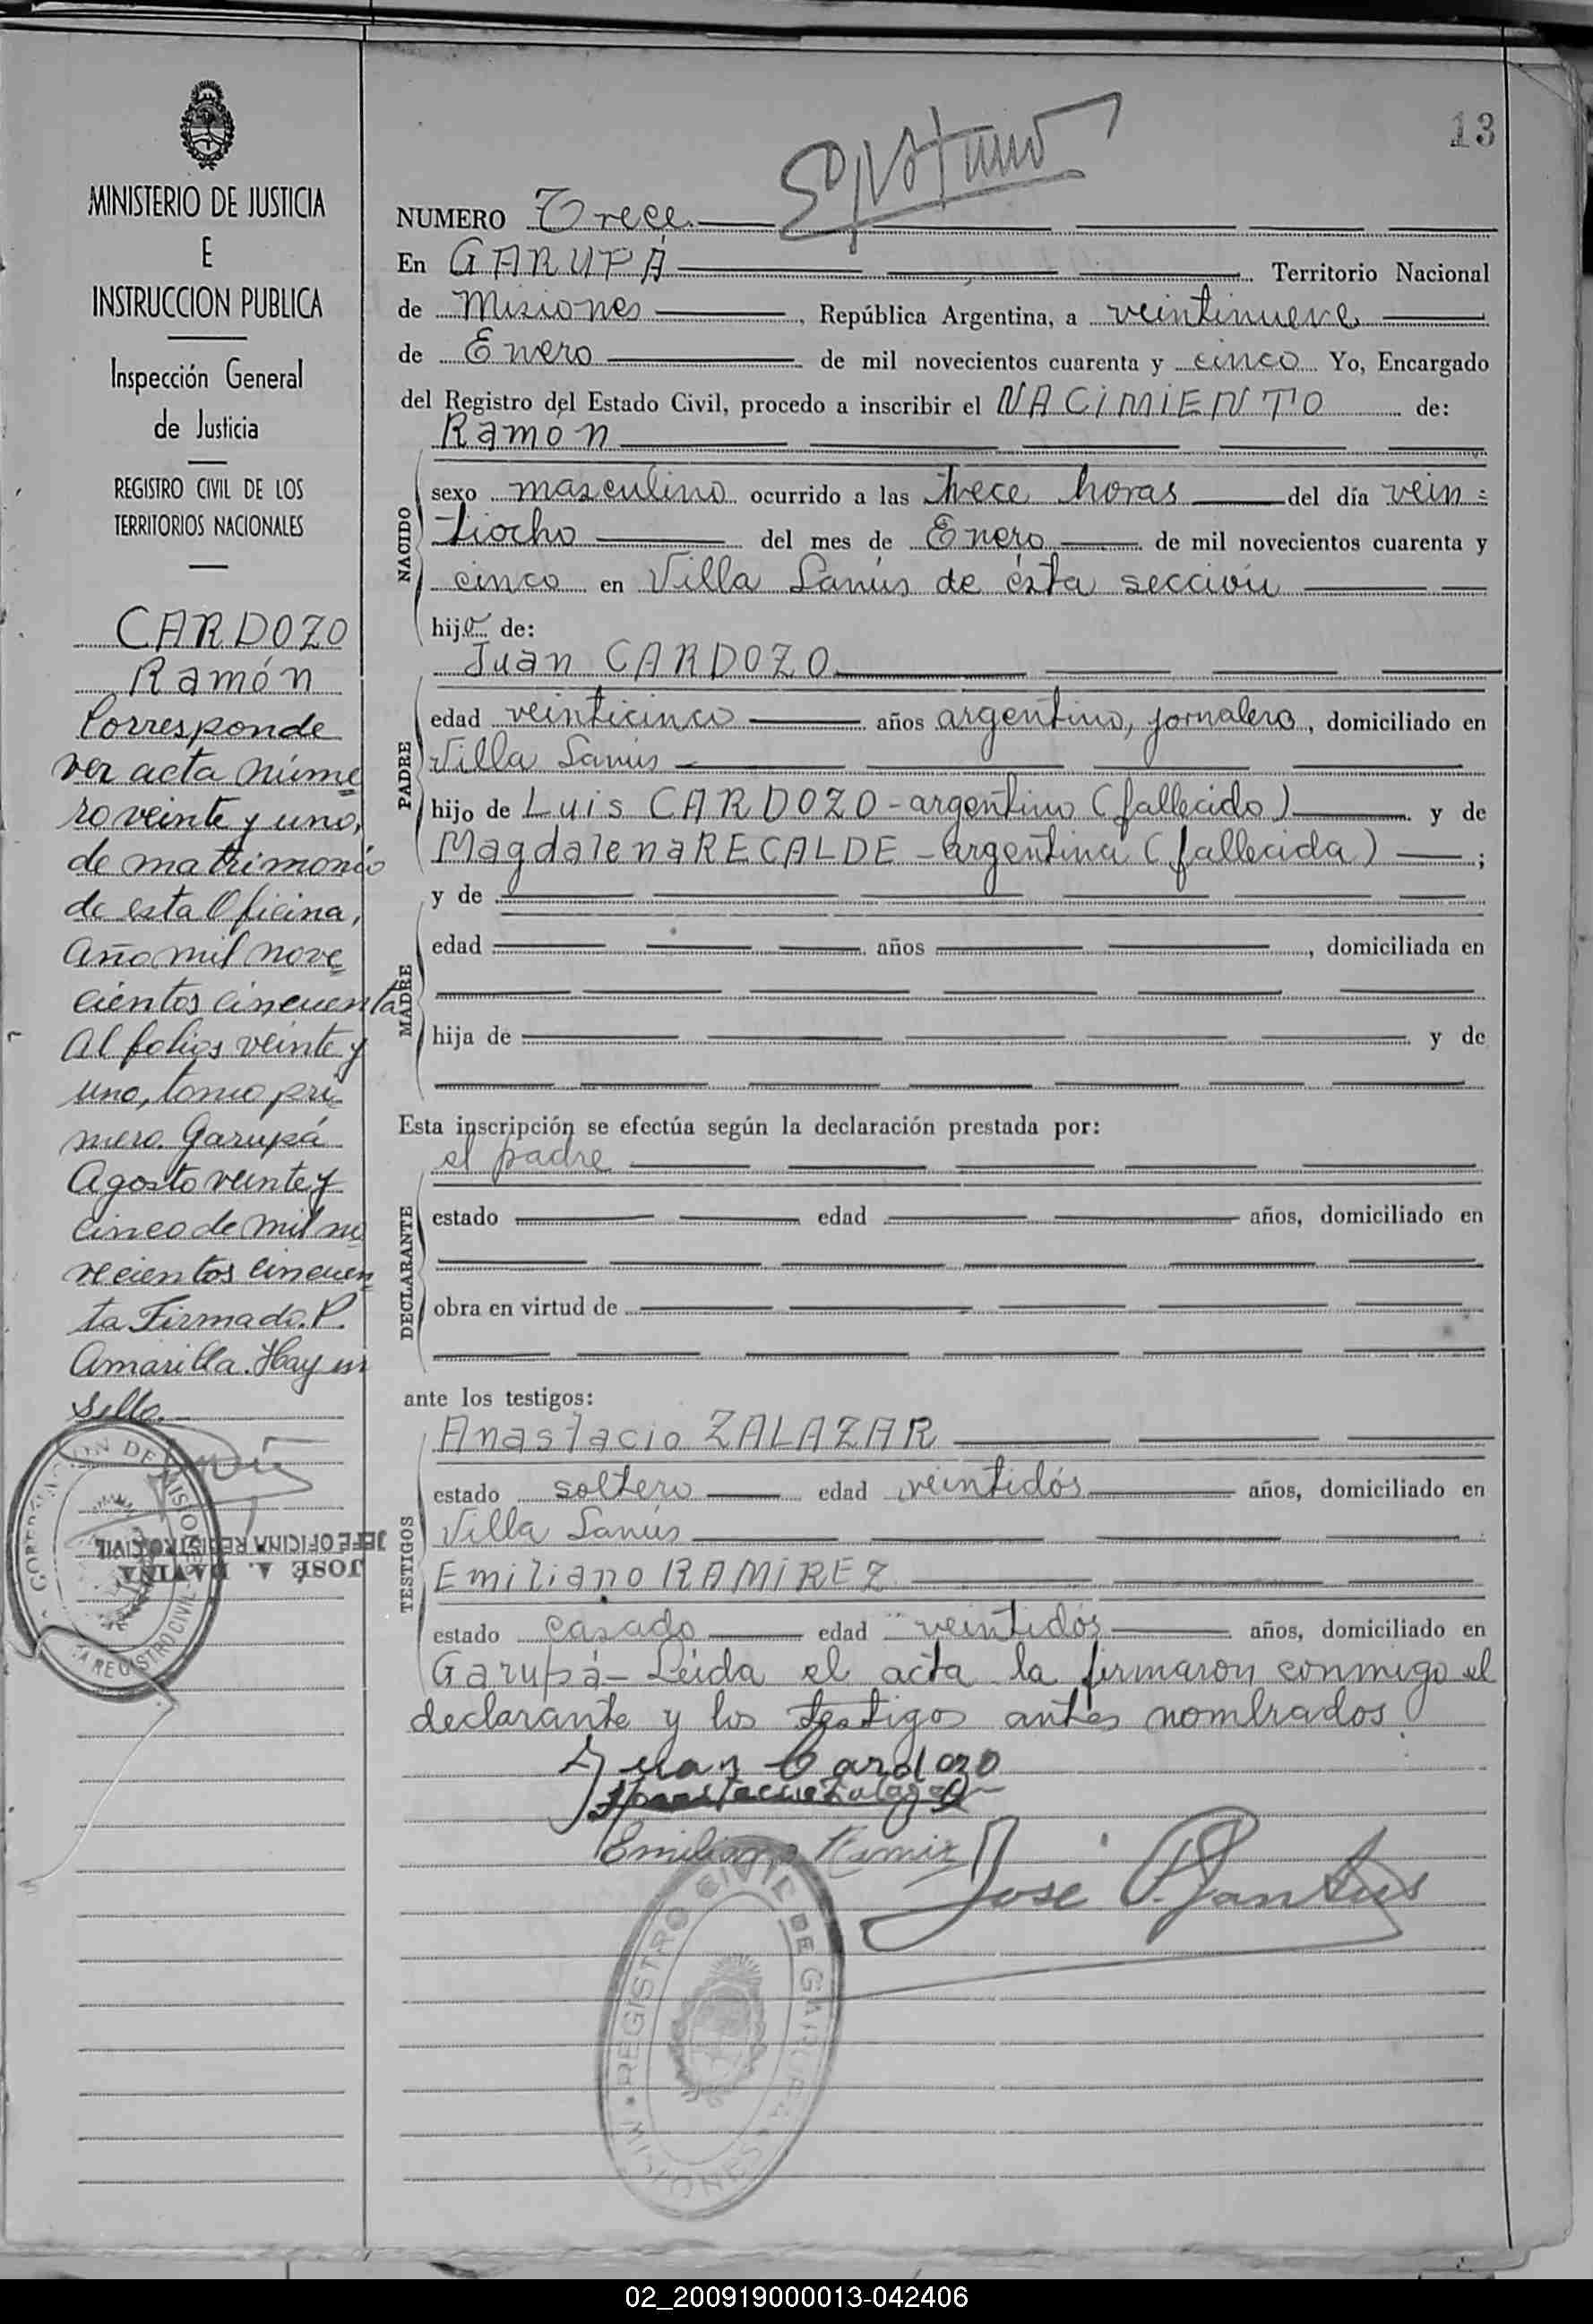 13
MINISTERIO DE JUSTICIA
E
INSTRUCCION PUBLICA
Inspección General
de Justicia
REGISTRO CIVIL DE LOS
TERRITORIOS NACIONALES
CARDOZO
Ramón
Corresponde
ver acta núme
ro veinte y uno,
de matrimonio
de esta Oficina,
año mil nove
cientos cincuenta
al folios veinte y
uno, tomo pri
mero. Garupá
Agosto veinte y
cinco de mil no
vecientos cincuen
ta Firmado. P.
Amarilla. Hay un
Sello.
JOSÉ A. DAVIÑA
JEFE OFICINA REGISTRO CIVIL
NUMERO Trece
En GARUPÁ Territorio Nacional
de Misiones, República Argentina, a veintinueve
de Enero de mil novecientos cuarenta y cinco Yo, Encargado
del Registro del Estado Civil, procedo a inscribir el NACIMIENTO de:
Ramón
NACIDO
sexo masculino ocurrido a las trece horas del día vein=
tiocho del mes de Enero de mil novecientos cuarenta y
cinco en Villa Lanús de ésta sección
hijo de:
Juan CARDOZO
PADRE
edad veinticinco años argentino, jornalero, domiciliado en
Villa Lanús
hijo de Luis CARDOZO - argentino (fallecido) y de
Magdalena RECALDE - argentina (fallecida) ;
y de
MADRE
edad años , domiciliada en
hija de y de
Esta inscripción se efectúa según la declaración prestada por:
el padre
DECLARANTE
estado edad años, domiciliado en
obra en virtud de
ante los testigos:
Anastacio ZALAZAR
TESTIGOS
estado soltero edad veintidós años, domiciliado en
Villa Lanús
Emiliano RAMIREZ
estado casado edad veintidós años, domiciliado en
Garupá - Leida el acta la firmaron conmigo el
declarante y los testigos antes nombrados
Juan Cardozo
Emiliano Ramirez
José
REGISTRO CIVIL DE GARUPÁ
MISIONES
02_200919000013-042406